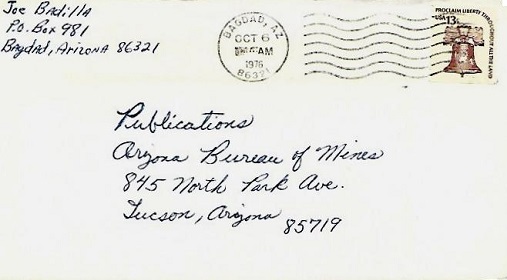 Joe Badilla
P.O. Box 981
Bagdad, Arizona 86321
BAGDAD, AZ
OCT 6
AM
1976
86321
PROCLAIM LIBERTY THROUGHOUT ALL THE LAND
USA 13c
Publications
Arizona Bureau of Mines
845 North Park Ave.
Tucson, Arizona 85719